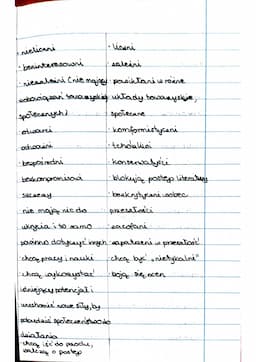 - nieliczni - liczni
- bezinteresowni - zależni
- niezależni (nie mający - powikłani w różne
zobowiązań towarzyskich układy towarzyskie,
społecznych) społeczne
- otwarci - konformistyczni
- odważni - tchórzliwi
- bezpośredni - konserwatyści
- bezkompromisowi - blokują postęp literatury
- szczerzy - bezkrytyczni wobec
- nie mają nic do przeszłości
ukrycia i to samo - zacofani
powinno dotyczyć innych - zapatrzeni w przeszłość
- chcą pracy i nauki - chcą być „nietykalni"
- chcą wykorzystać - boją się ocen
istniejący potencjał i
uruchomić nowe siły, by
pobudzić społeczeństwo do
działania
- chcą iść do przodu,
walczą o postęp